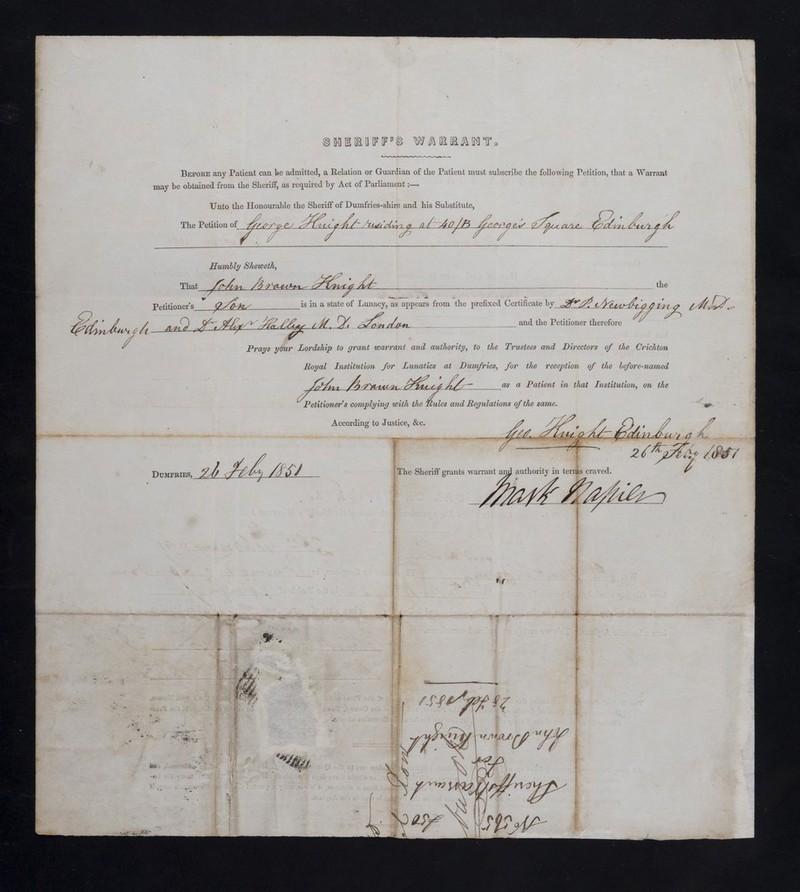 SHERIFF'S WARRANT.
BEFORE any Patient can be admitted, a Relation or Guardian of the Patient must subscribe the following Petition, that a Warrant
may be obtained from the Sheriff, as required by Act of Parliament:—
Unto the Honourable the Sheriff of Dumfries-shire and his Substitute,
The Petition of George Knight residing at 40/B George's Square Edinburgh
Humbly Sheweth,
That John Brown Knight the
Petitioner's Son is in a state of Lunacy, as appears from the prefixed Certificate by Dr P. Newbigging M.D.
Edinburgh and Dr Alexr Halley M.D. London and the Petitioner therefore
Prays your Lordship to grant warrant and authority, to the Trustees and Directors of the Crichton
Royal Institution for Lunatics at Dumfries, for the reception of the before-named
John Brown Knight as a Patient in that Institution, on the
Petitioner's complying with the Rules and Regulations of the same.
According to Justice, &c.
Geo. Knight Edinburgh
26th Feby 1851
DUMFRIES, 26 Feby 1851 The Sheriff grants warrant and authority in terms craved.
Mark Napier
No 565
Sheriff's Warrant
for
John Brown Knight
28 Feby 1851